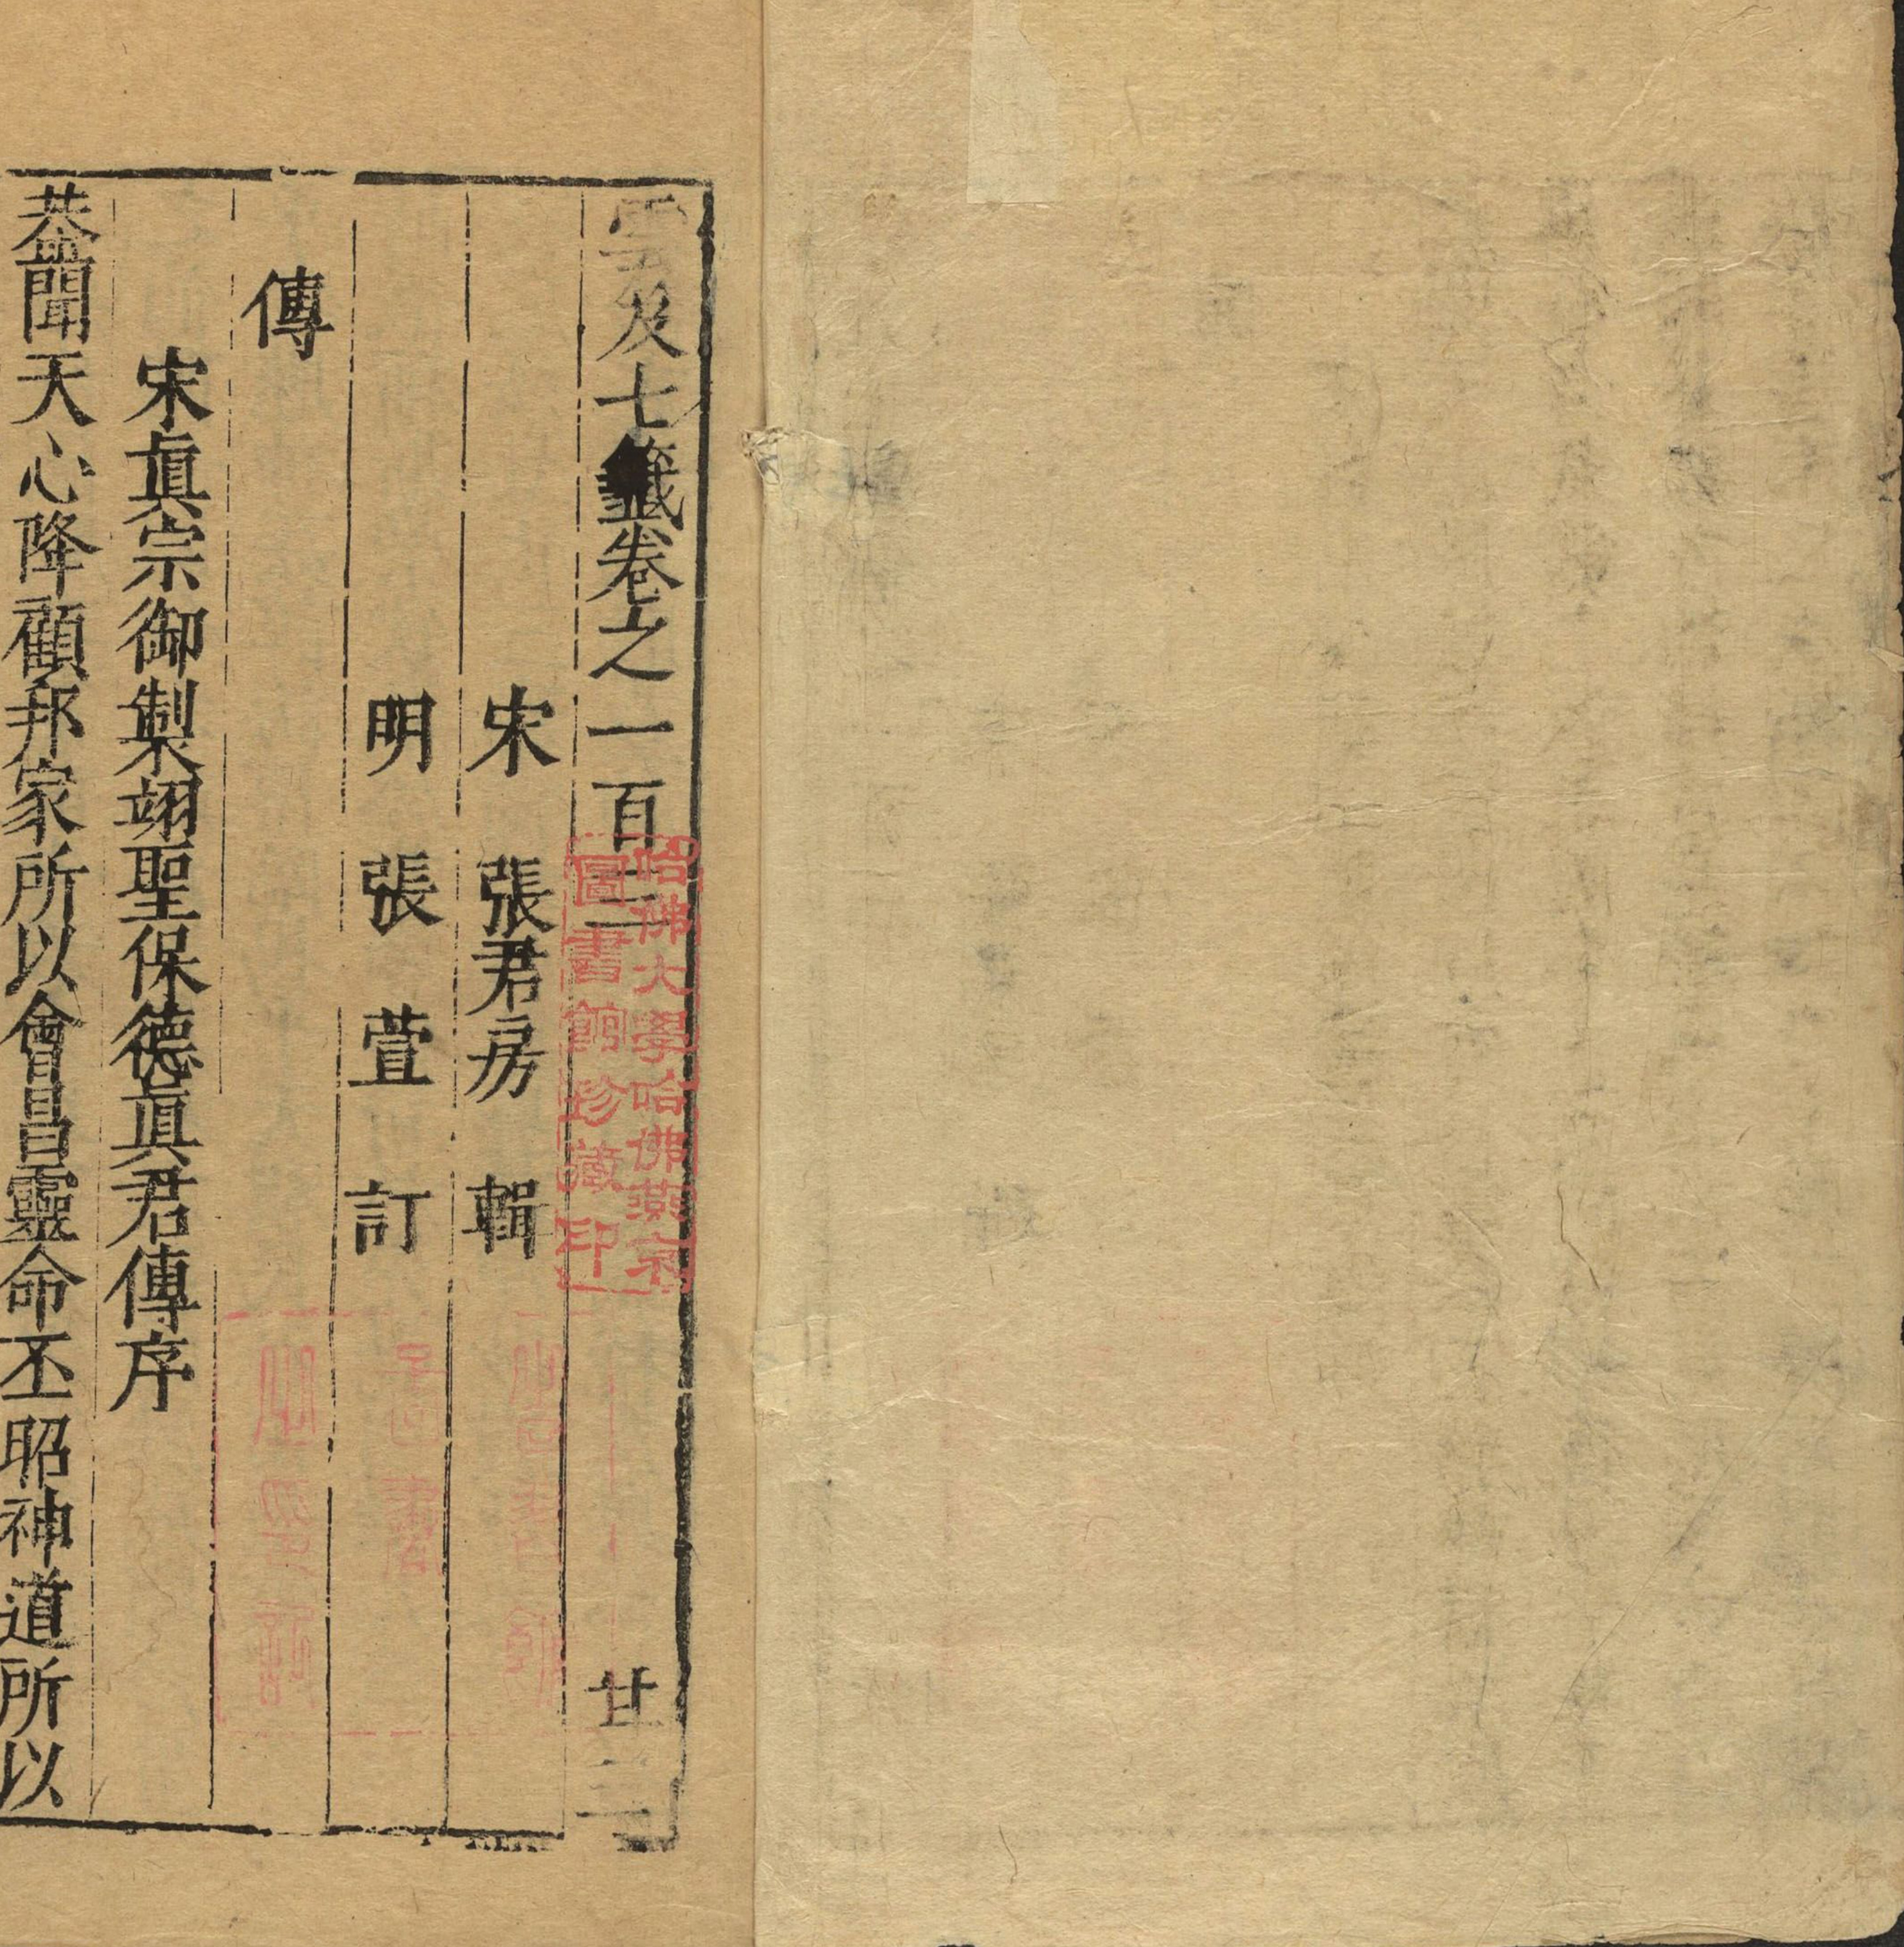 雲笈七籤卷之一百三 廿三
宋 張君房 輯
明 張 萱 訂
傳
宋眞宗御製翊聖保德眞君傳序
恭聞天心降顧邦家所以會昌靈命丕昭神道所以
哈佛大學哈佛燕京
圖書館珍藏印